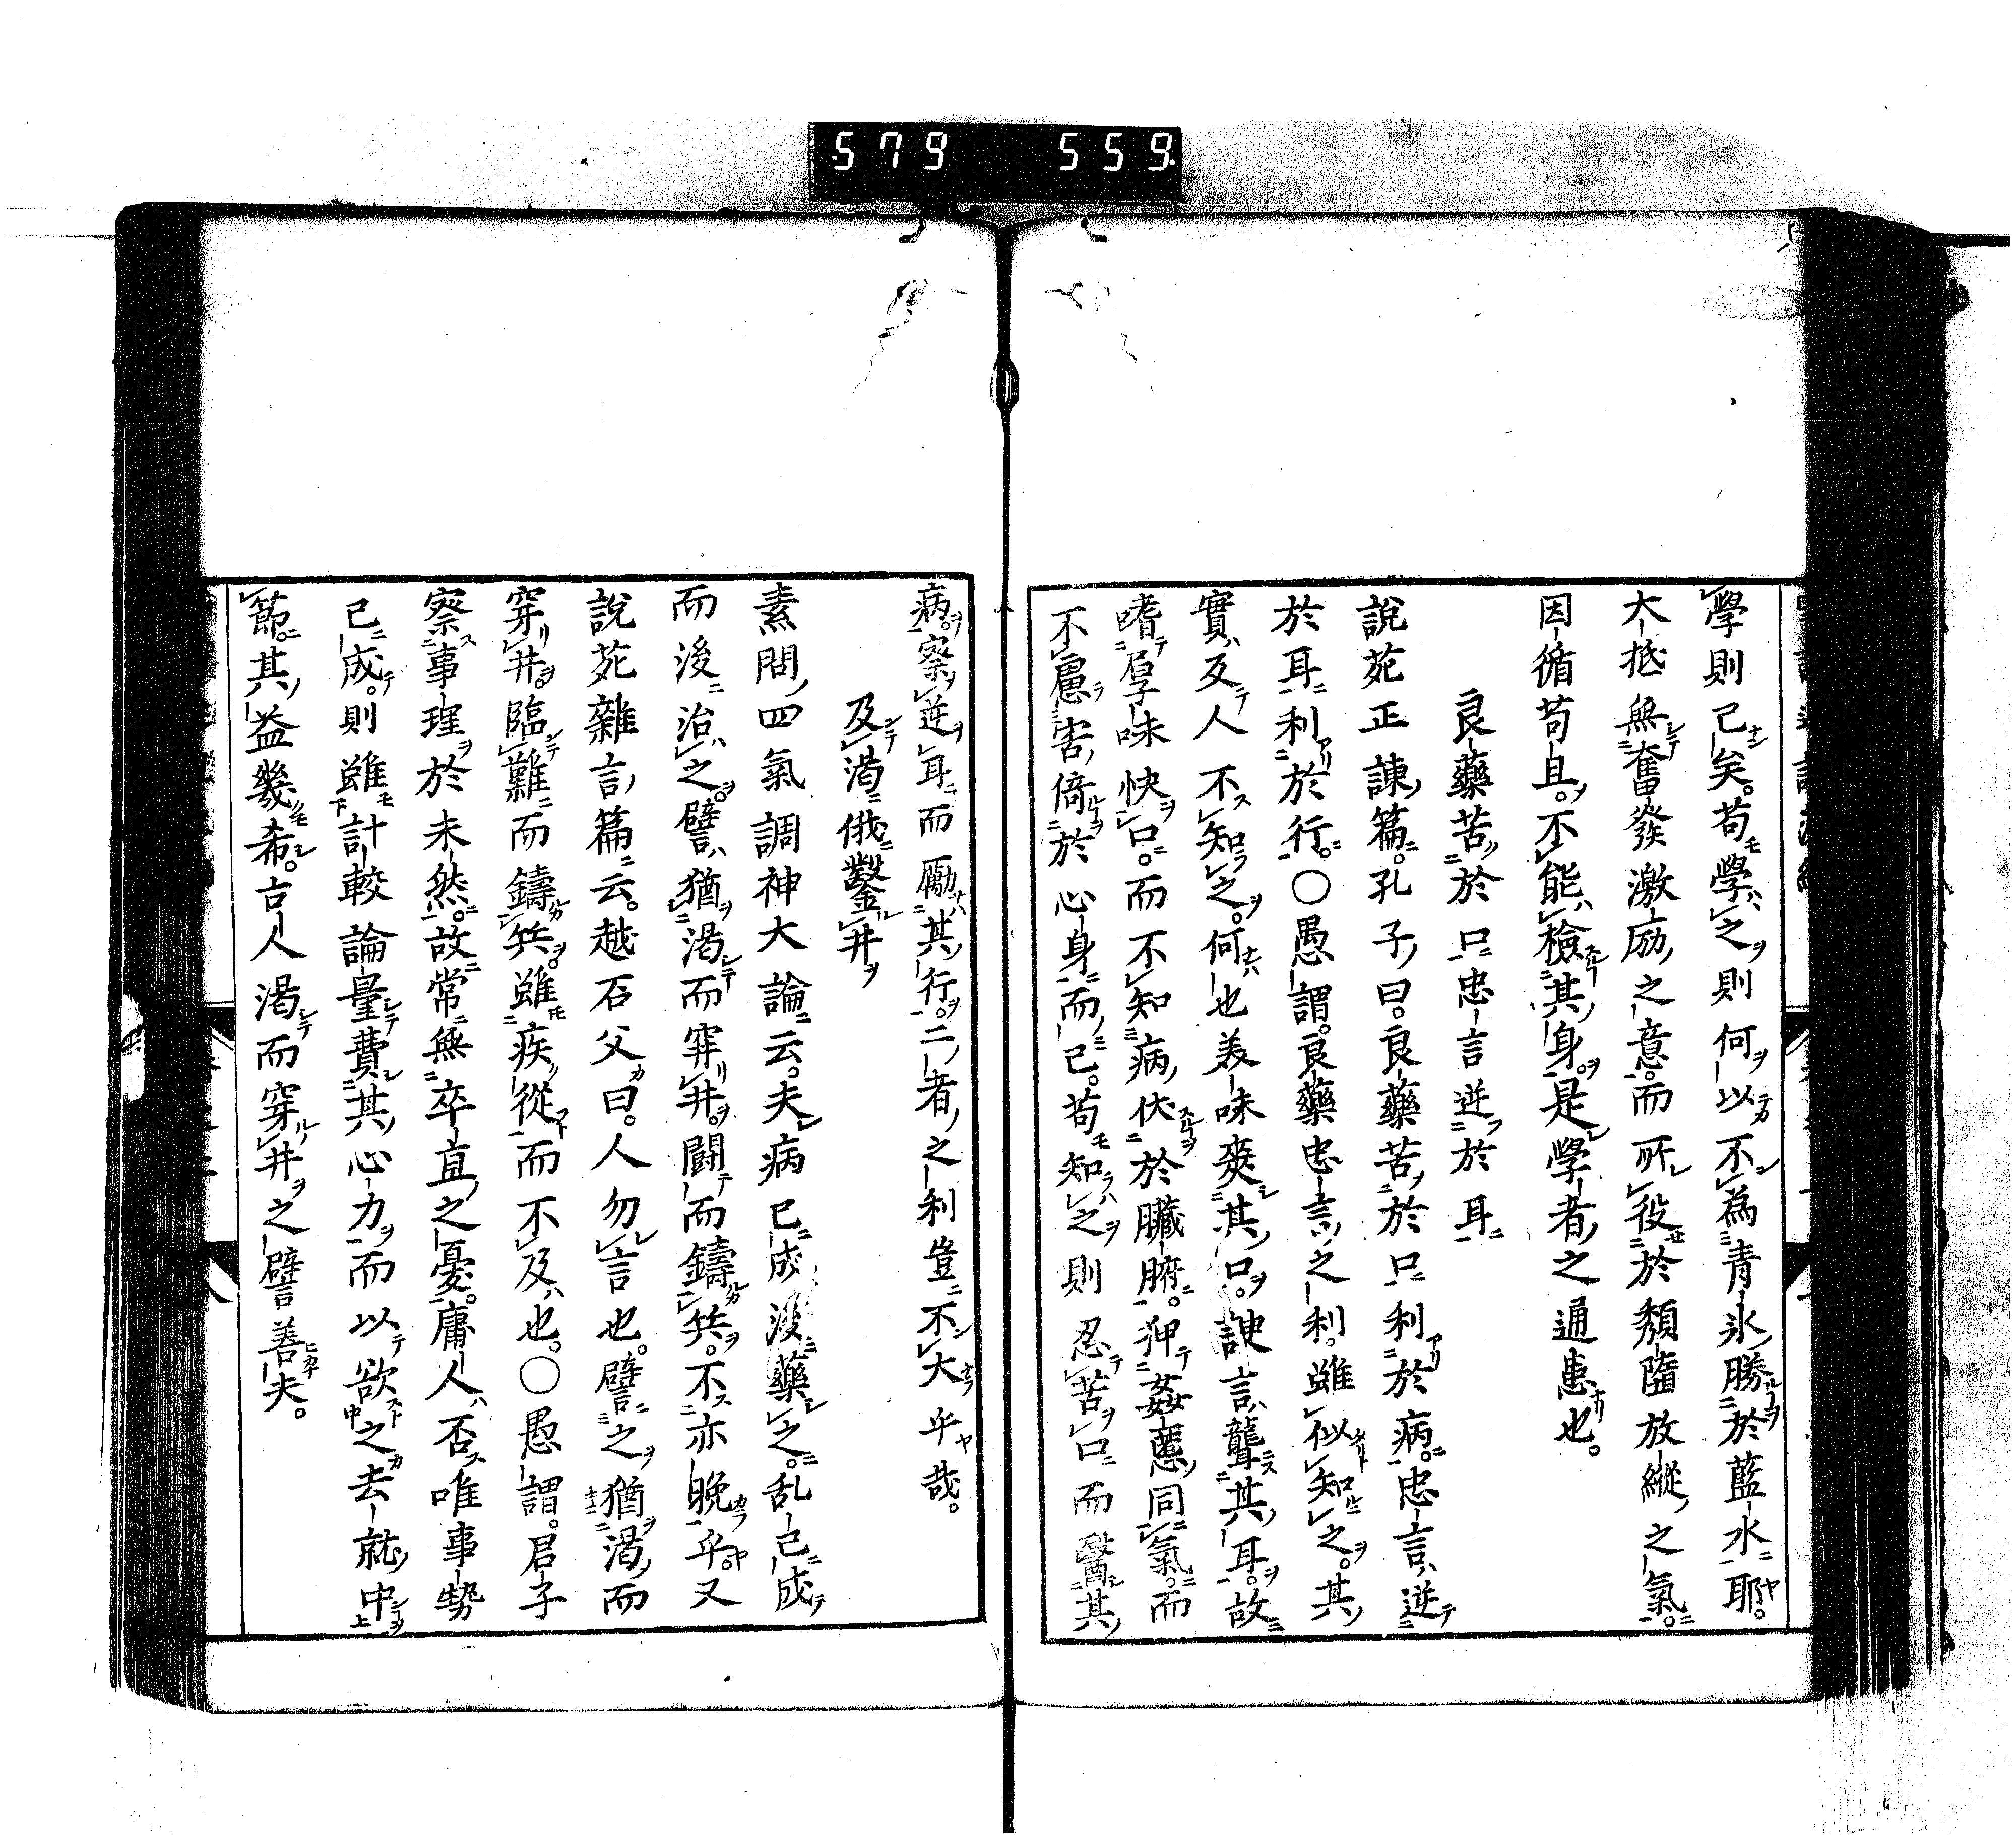 579 559.
學則已矣。苟學之則何以不為青氷勝於藍水耶。
大抵無奮發激励之意。而所役於頽隨放縱之氣。
因循苟且。不能檢其身。是學者之通患也。
良藥苦於口忠言逆於耳
說苑正諫篇。孔子曰。良藥苦於口利於病。忠言逆
於耳利於行。〇愚謂。良藥忠言之利。雖似知之。其
實反人不知之。何也美味爽其口。諛言聾其耳。故
嗜厚味快口。而不知病伏於臟腑。狎姦慝同氣。而
不慮害倚於心身而已。苟知之則忍苦口而醫其
病。察逆耳而勵其行。二者之利豈不大乎哉。
及渇俄鑿井
素問四氣調神大論云。夫病已成後藥之。乱已成
而後治之。譬猶渇而穿井。闘而鑄兵。不亦晚乎又
說苑雜言篇云。越石父曰。人勿言也。譬之猶渇而
穿井。臨難而鑄兵。雖疾從而不及也。〇愚謂。君子
察事理於未然。故常無卒直之憂。庸人否唯事勢
已成。則雖計較論量費其心力而以欲之去就中
節其益幾希。古人渇而穿井之譬善夫。